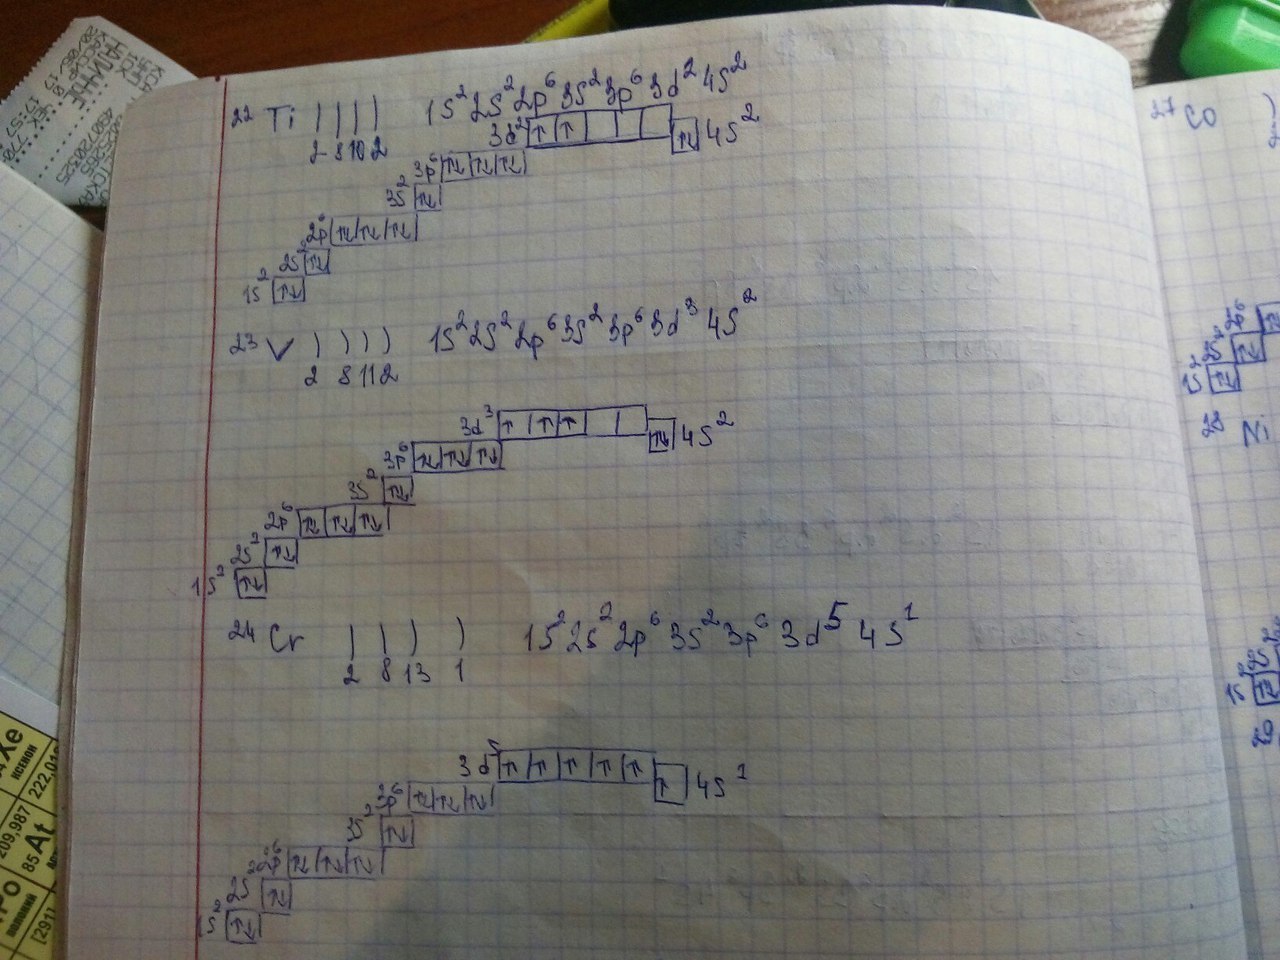 22 Ti ) ) ) ) 1s²2s²2p⁶3s²3p⁶3d²4s²
2 8 10 2
3d² ↑ ↑ ↑↓ 4s²
3p⁶ ↑↓ ↑↓ ↑↓
3s² ↑↓
2p⁶ ↑↓ ↑↓ ↑↓
2s² ↑↓
1s² ↑↓
23 V ) ) ) ) 1s²2s²2p⁶3s²3p⁶3d³4s²
2 8 11 2
3d³ ↑ ↑ ↑ ↑↓ 4s²
3p⁶ ↑↓ ↑↓ ↑↓
3s² ↑↓
2p⁶ ↑↓ ↑↓ ↑↓
2s² ↑↓
1s² ↑↓
24 Cr ) ) ) ) 1s²2s²2p⁶3s²3p⁶3d⁵4s¹
2 8 13 1
3d⁵ ↑ ↑ ↑ ↑ ↑ ↑ 4s¹
3p⁶ ↑↓ ↑↓ ↑↓
3s² ↑↓
2p⁶ ↑↓ ↑↓ ↑↓
2s² ↑↓
1s² ↑↓
27 Co
1s² 2s² 2p⁶
28 Ni
1s² 2s²
29
НАЛИЧНЫЕ
17:57
Xe
ксенон
222,01
209,987
85 At
PO
полоний
[291]